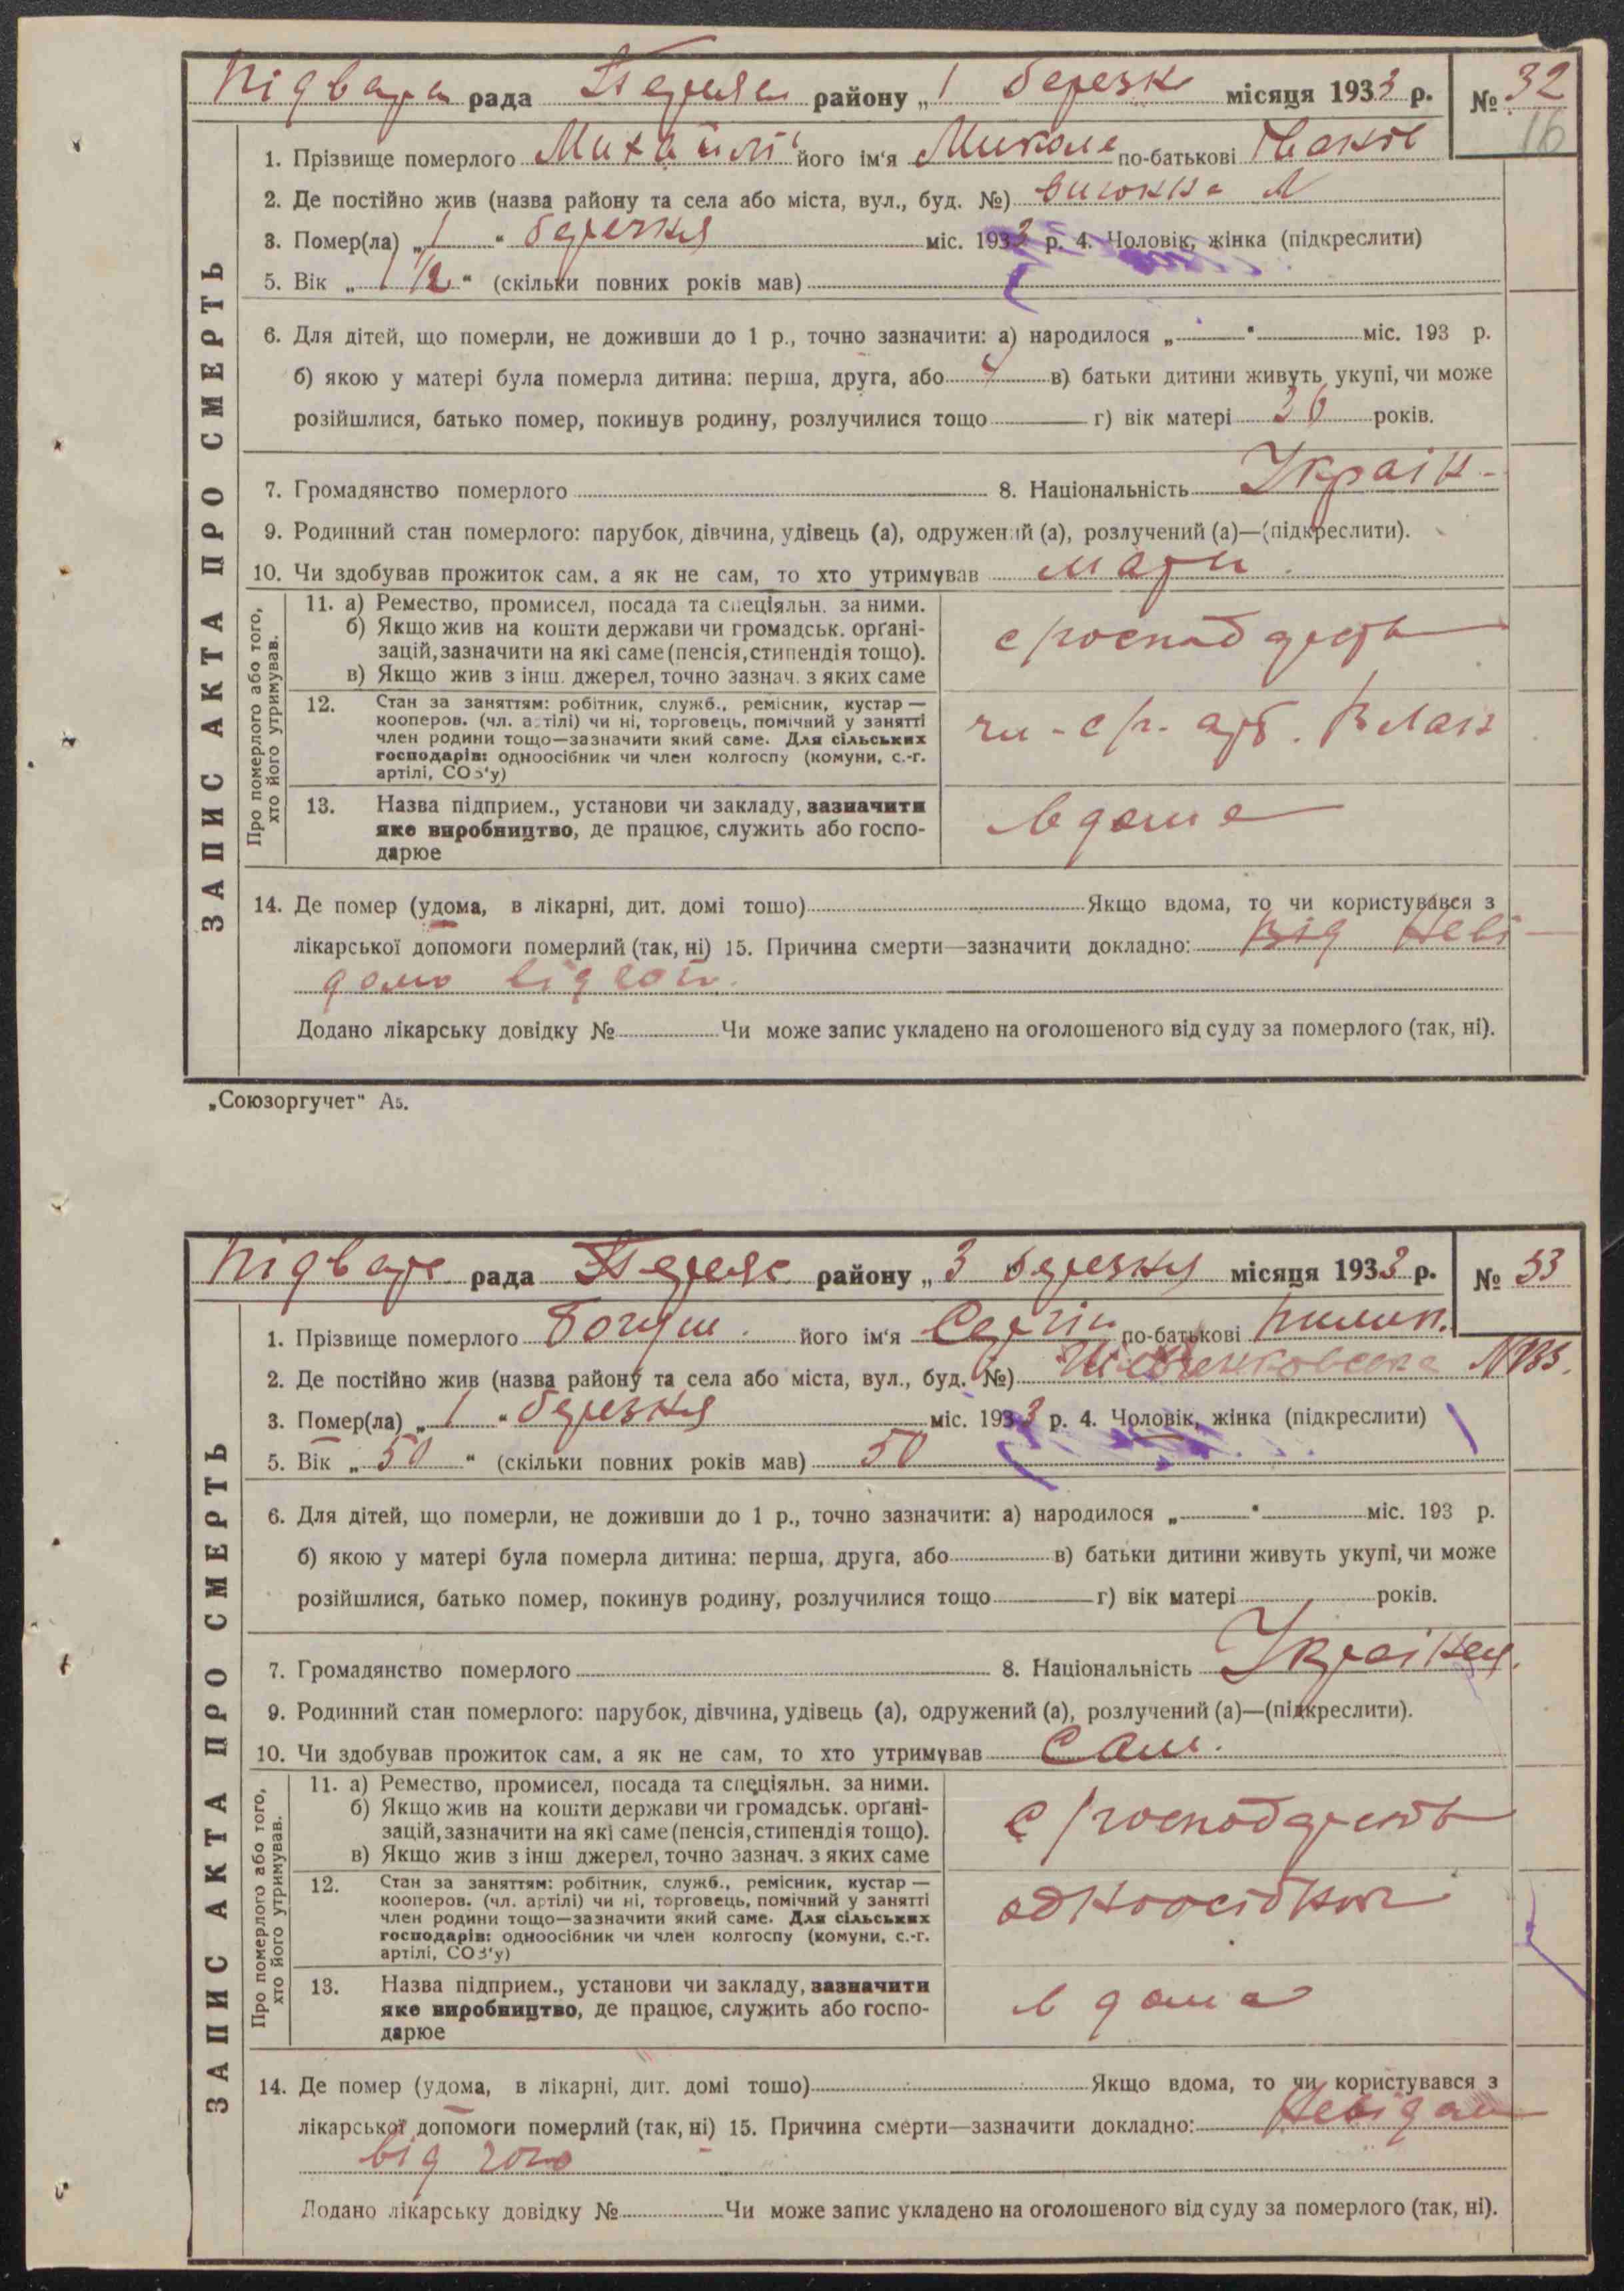 Підвара рада Переяс району „1 березня місяця 1933 р. № 32
16
1. Прізвище померлого Михайлі його ім'я Микола по-батькові
2. Де постійно жив (назва району та села або міста, вул., буд. №)
3. Помер(ла) „1“ березня міс. 1933 р. 4. Чоловік, жінка (підкреслити)
5. Вік „1 1/2“ (скільки повних років мав)
6. Для дітей, що померли, не доживши до 1 р., точно зазначити: а) народилося „ “ міс. 193 р.
б) якою у матері була померла дитина: перша, друга, або в) батьки дитини живуть укупі, чи може
розійшлися, батько помер, покинув родину, розлучилися тощо г) вік матері 36 років.
7. Громадянство померлого 8. Національність Україн-
9. Родинний стан померлого: парубок, дівчина, удівець (а), одружений (а), розлучений (а)—(підкреслити).
10. Чи здобував прожиток сам, а як не сам, то хто утримував мати
ЗАПИС АКТА ПРО СМЕРТЬ
Про померлого або того, хто його утримував.
11. а) Ремество, промисел, посада та спеціяльн. за ними.
б) Якщо жив на кошти держави чи громадськ. орґані-
зацій, зазначити на які саме (пенсія, стипендія тощо).
в) Якщо жив з інш. джерел, точно зазнач. з яких саме
с/господарств
12. Стан за заняттям: робітник, служб., ремісник, кустар —
кооперов. (чл. артілі) чи ні, торговець, помічний у занятті
член родини тощо—зазначити який саме. Для сільських
господарів: одноосібник чи член колгоспу (комуни, с.-г.
артілі, СОЗ'у)
13. Назва підприєм., установи чи закладу, зазначити
яке виробництво, де працює, служить або госпо-
дарює
вдома
14. Де помер (удома, в лікарні, дит. домі тощо) Якщо вдома, то чи користувався з
лікарської допомоги померлий (так, ні) 15. Причина смерти—зазначити докладно: від Неві
домо від чого
Додано лікарську довідку № Чи може запис укладено на оголошеного від суду за померлого (так, ні).
„Союзоргучет“ А5.
Підвар рада Переяс району „3 березня місяця 1933 р. № 33
1. Прізвище померлого Богуш його ім'я Сергій по-батькові Пилип.
2. Де постійно жив (назва району та села або міста, вул., буд. №) Шевченковська
3. Помер(ла) „1“ березня міс. 1933 р. 4. Чоловік, жінка (підкреслити)
5. Вік „50“ (скільки повних років мав) 50
6. Для дітей, що померли, не доживши до 1 р., точно зазначити: а) народилося „ “ міс. 193 р.
б) якою у матері була померла дитина: перша, друга, або в) батьки дитини живуть укупі, чи може
розійшлися, батько помер, покинув родину, розлучилися тощо г) вік матері років.
7. Громадянство померлого 8. Національність Українец.
9. Родинний стан померлого: парубок, дівчина, удівець (а), одружений (а), розлучений (а)—(підкреслити).
10. Чи здобував прожиток сам, а як не сам, то хто утримував Сам.
ЗАПИС АКТА ПРО СМЕРТЬ
Про померлого або того, хто його утримував.
11. а) Ремество, промисел, посада та спеціяльн. за ними.
б) Якщо жив на кошти держави чи громадськ. орґані-
зацій, зазначити на які саме (пенсія, стипендія тощо).
в) Якщо жив з інш джерел, точно зазнач. з яких саме
с/господарств
12. Стан за заняттям: робітник, служб., ремісник, кустар —
кооперов. (чл. артілі) чи ні, торговець, помічний у занятті
член родини тощо—зазначити який саме. Для сільських
господарів: одноосібник чи член колгоспу (комуни, с.-г.
артілі, СОЗ'у)
одноосібник
13. Назва підприєм., установи чи закладу, зазначити
яке виробництво, де працює, служить або госпо-
дарює
в дома
14. Де помер (удома, в лікарні, дит. домі тощо) Якщо вдома, то чи користувався з
лікарської допомоги померлий (так, ні) 15. Причина смерти—зазначити докладно: Невідом
від чого
Додано лікарську довідку № Чи може запис укладено на оголошеного від суду за померлого (так, ні).